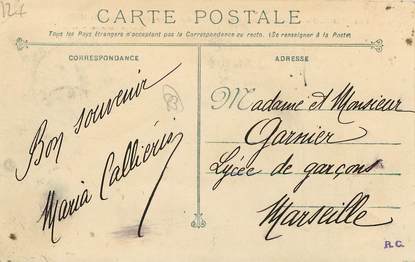 124
CARTE POSTALE
Tous les Pays étrangers n'acceptant pas la Correspondance au recto. (Se renseigner à la Poste)
CORRESPONDANCE
ADRESSE
Bon souvenir
Maria Calliéris
Madame et Monsieur
Garnier
Lycée de garçons
Marseille
R.C.